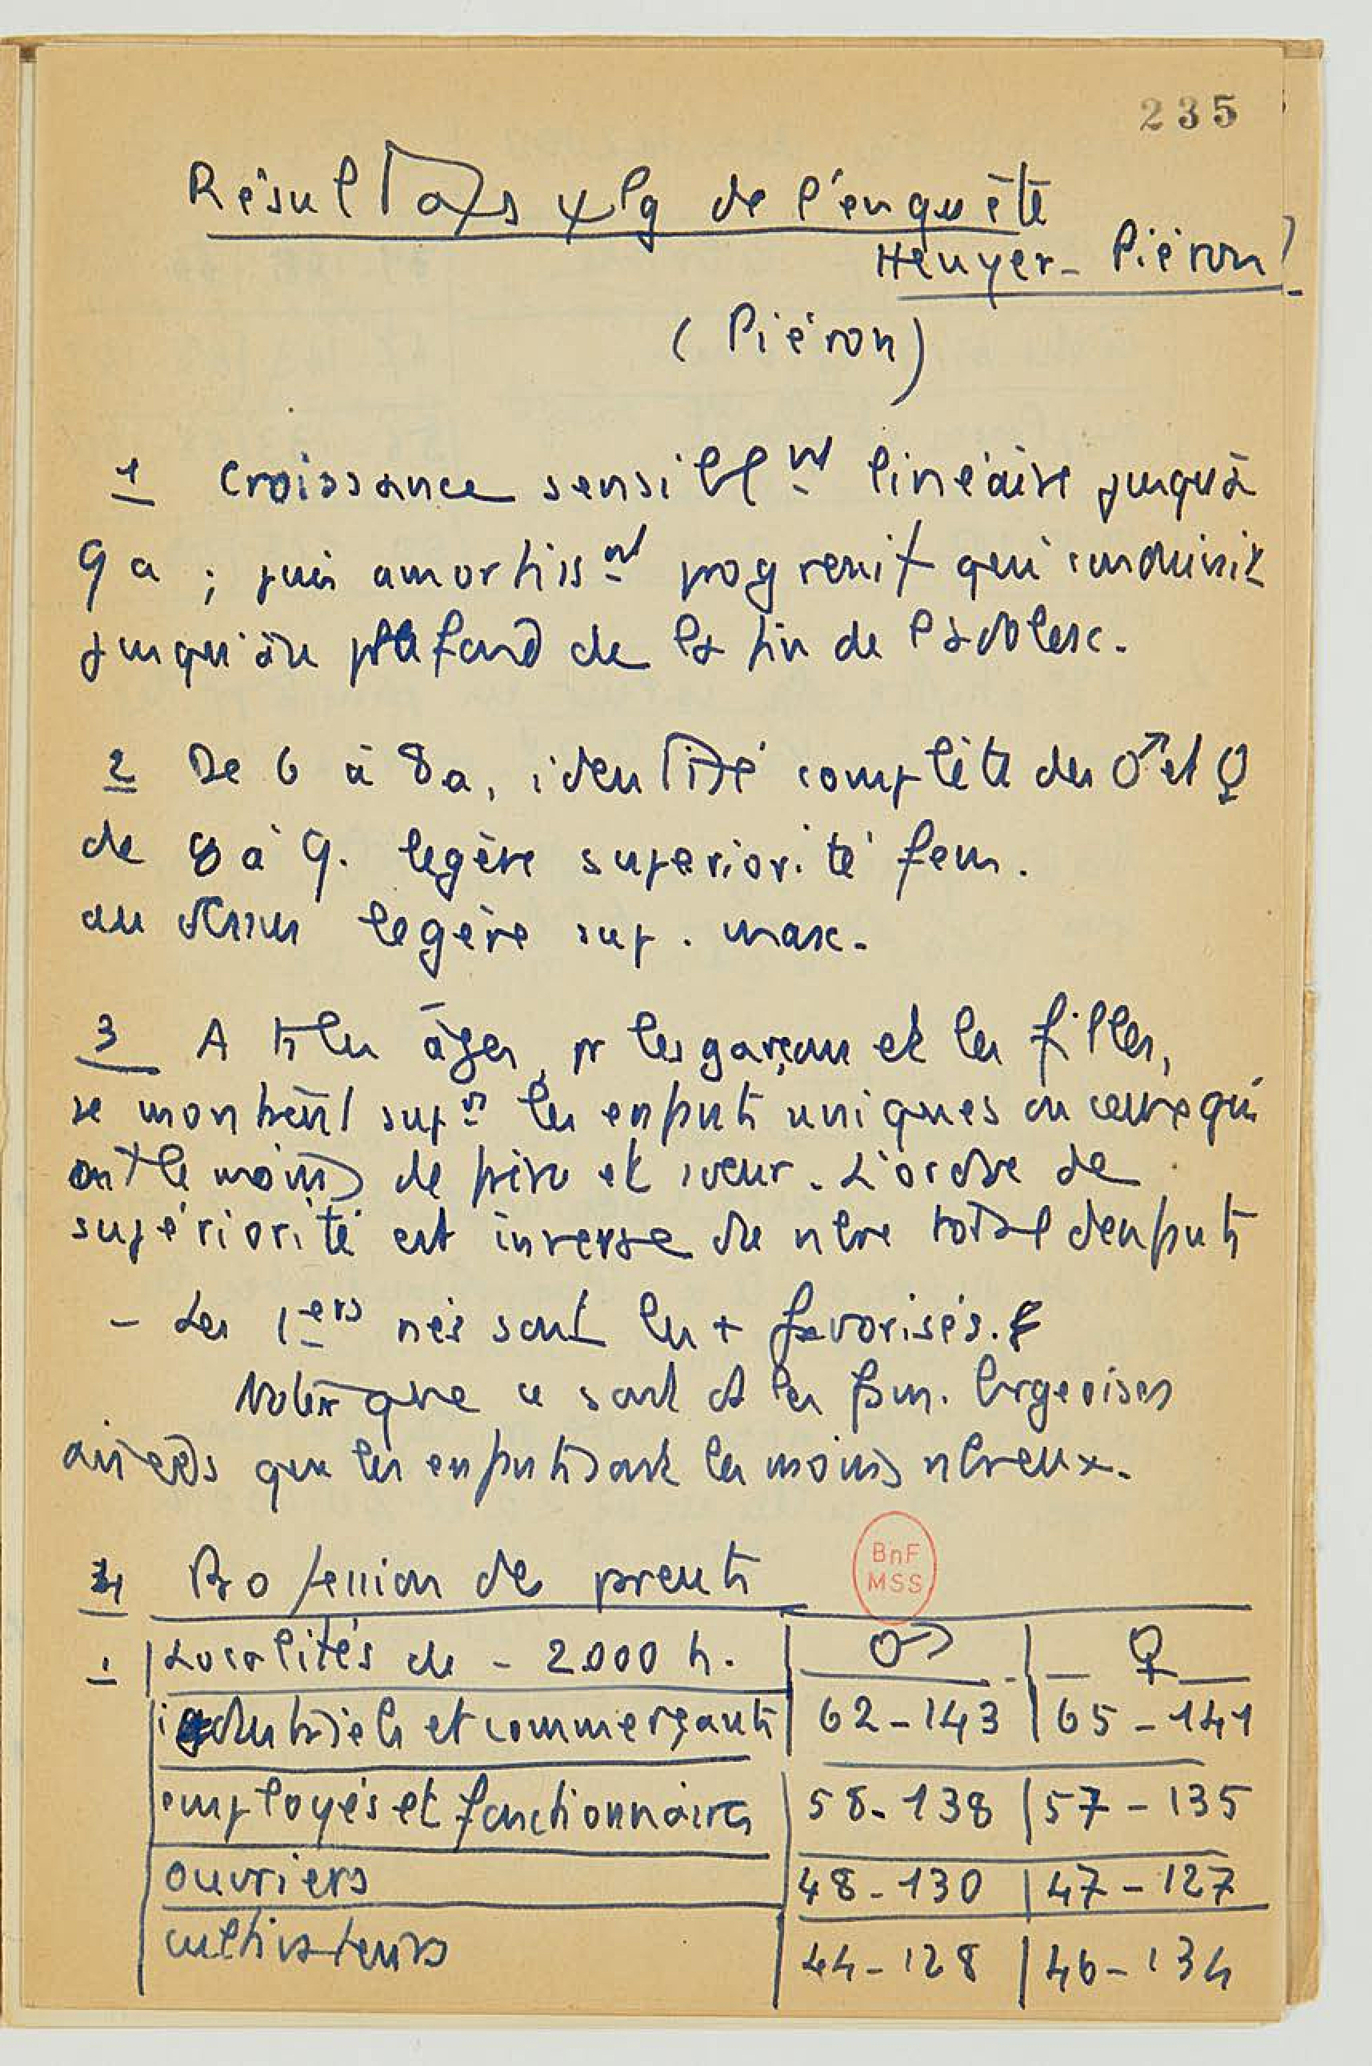 235
Résultats ψlg de l'enquête
Heuyer - Piéron
(Piéron)
1 Croissance sensiblnt linéaire jusqu'à
9 a ; puis amortisnt progressif qui conduisit
jusqu'au plafond de la fin de l'adolesc.
2 De 6 à 8 a, identité complète des ♂ et ♀
de 8 à 9. légère supériorité fem.
au dessus légère sup. masc.
3 A ts les âges, pr les garçons et les filles,
se montrent suprs les enfants uniques ou ceux qui
ont le moins de frère et soeur. L'ordre de
supériorité est inverse du nbre total d'enfants
- Les 1ers nés sont les + favorisés.
Noter que ce sont ds les fam. brgeoises
aisées que les enfants sont les moins nbreux.
4 Profession des parents
Localités de - 2000 h. ♂ ♀
industriels et commerçants 62-143 65-141
employés et fonctionnaires 58-138 57-135
ouvriers 48-130 47-127
cultivateurs 44-128 46-134
BnF
MSS